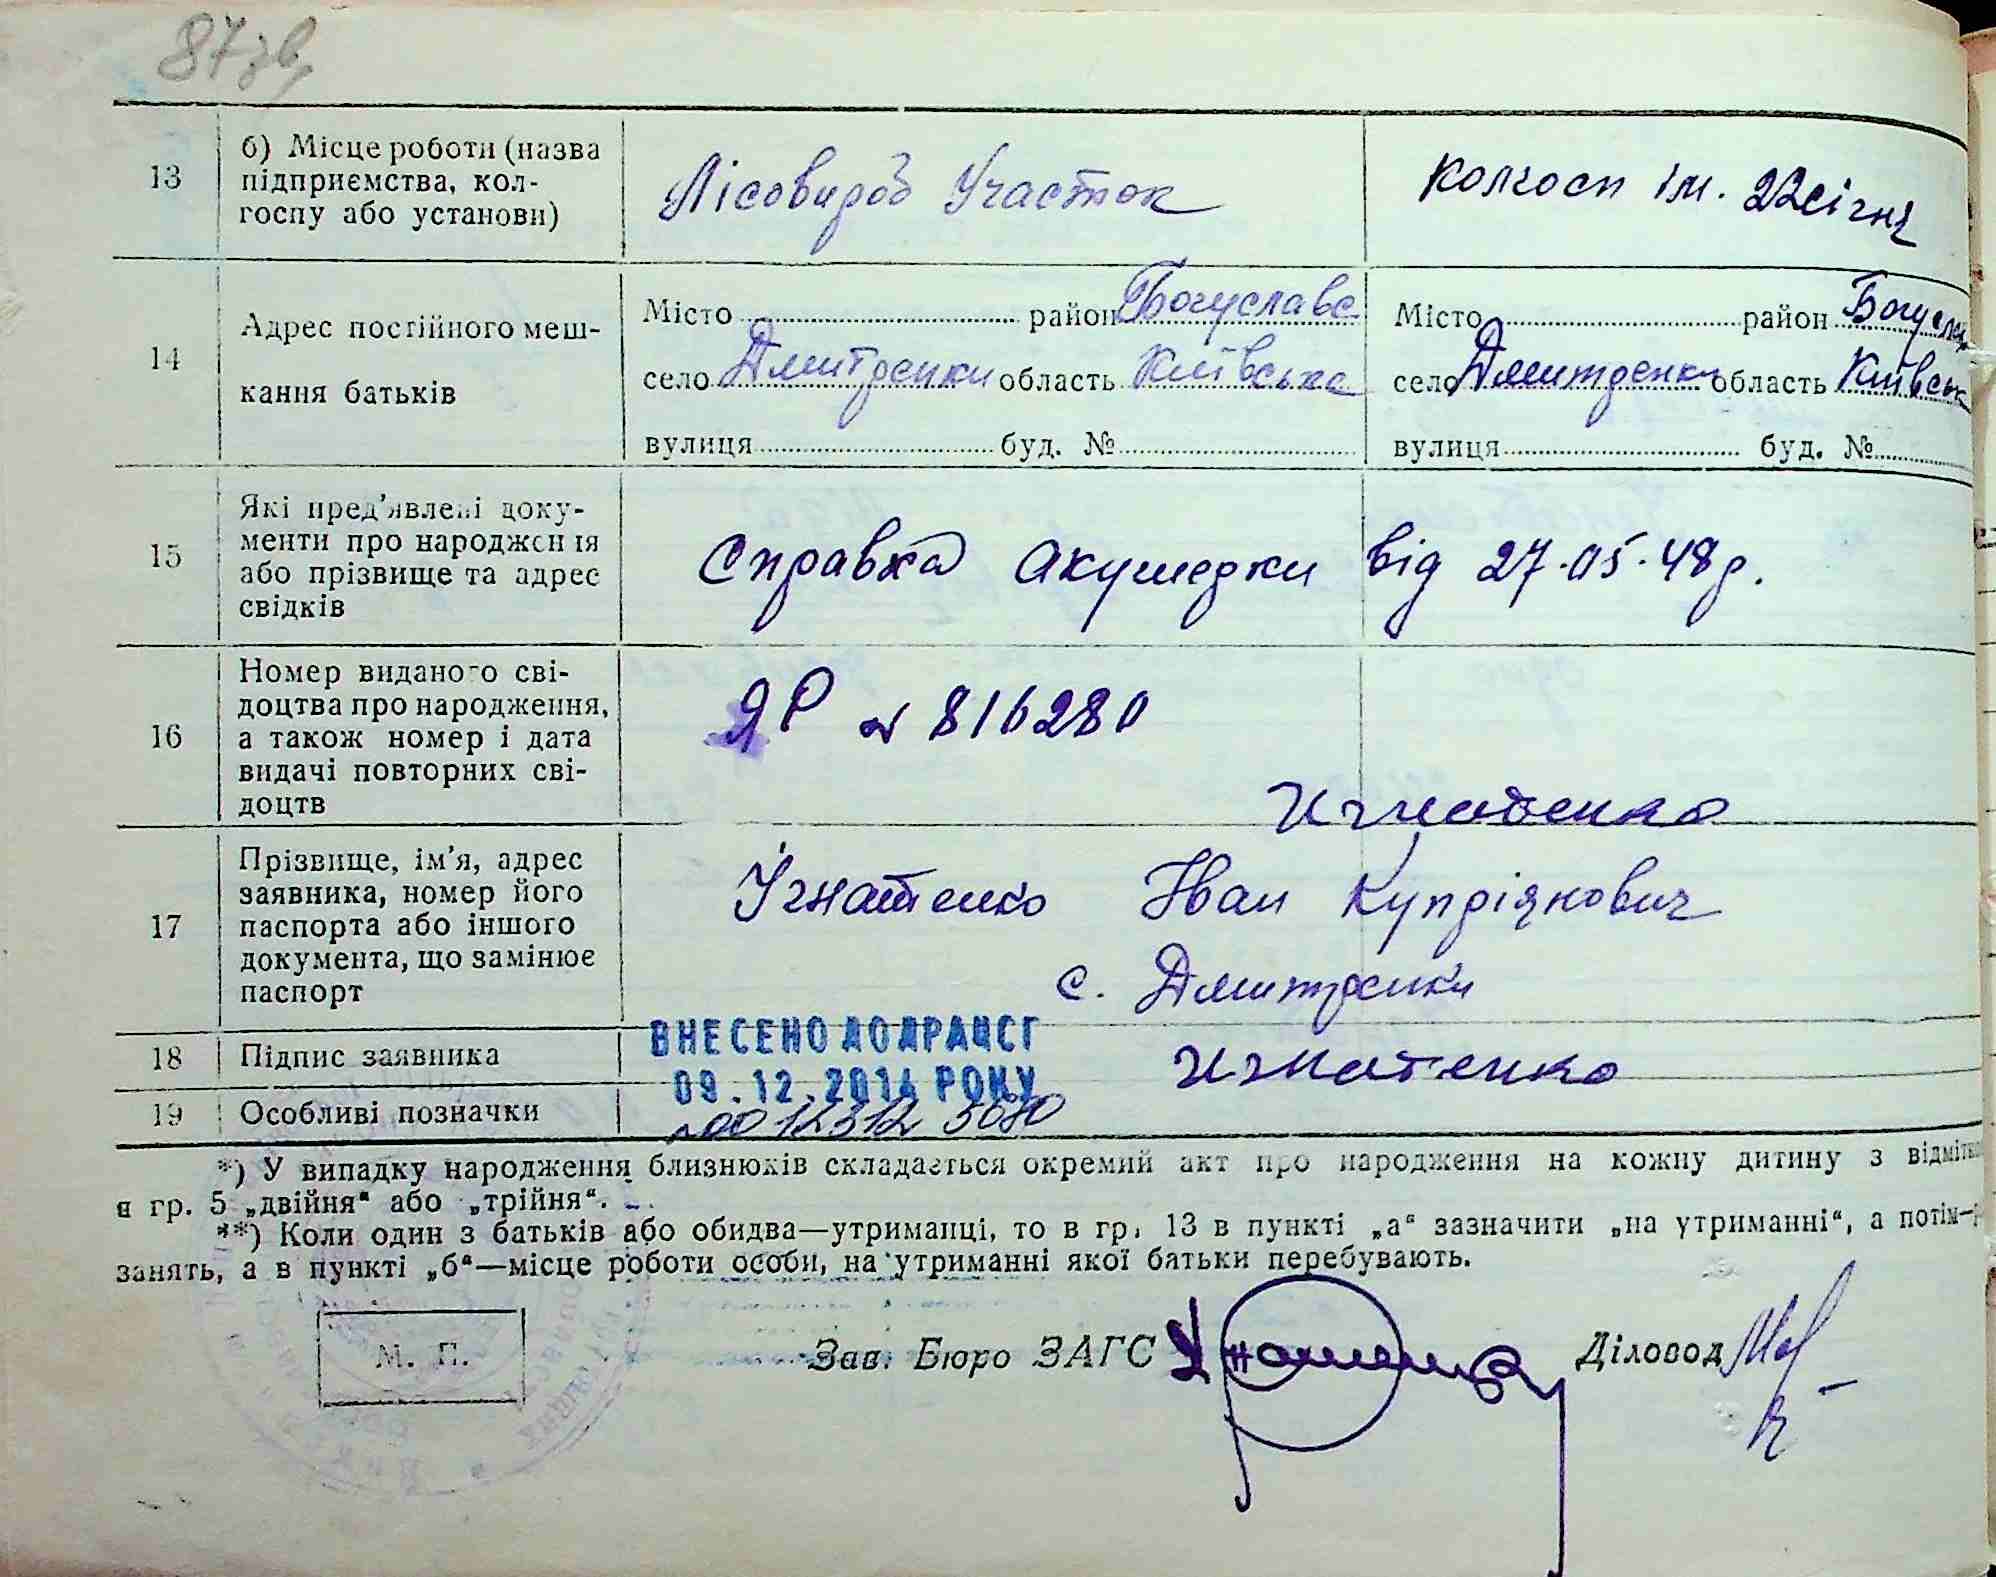 87зв.
13
б) Місце роботи (назва
підприємства, кол-
госпу або установи)
Лісовироб Участок
Колгосп ім. 22 січня
14
Адрес постійного меш-
кання батьків
Місто район Богуславс
село Дмитренки область Київська
вулиця буд. №
Місто район Богуслав
село Дмитренки область Київськ
вулиця буд. №
15
Які пред'явлені доку-
менти про народження
або прізвище та адрес
свідків
Справка Акушерки від 27.05.48р.
16
Номер виданого сві-
доцтва про народження,
а також номер і дата
видачі повторних сві-
доцтв
ЯР № 816280
Игнатенко
17
Прізвище, ім'я, адрес
заявника, номер його
паспорта або іншого
документа, що замінює
паспорт
Ігнатенко Іван Купріянович
с. Дмитренки
18
Підпис заявника
ВНЕСЕНО ДО ДРАЦСГ
09.12.2014 РОКУ
Игнатенко
19
Особливі позначки
00123123080
*) У випадку народження близнюків складається окремий акт про народження на кожну дитину з відмітко
в гр. 5 „двійня“ або „трійня“.
**) Коли один з батьків або обидва—утриманці, то в гр. 13 в пункті „а“ зазначити „на утриманні“, а потім—
занять, а в пункті „б“—місце роботи особи, на утриманні якої батьки перебувають.
М. П.
Зав. Бюро ЗАГС
Діловод